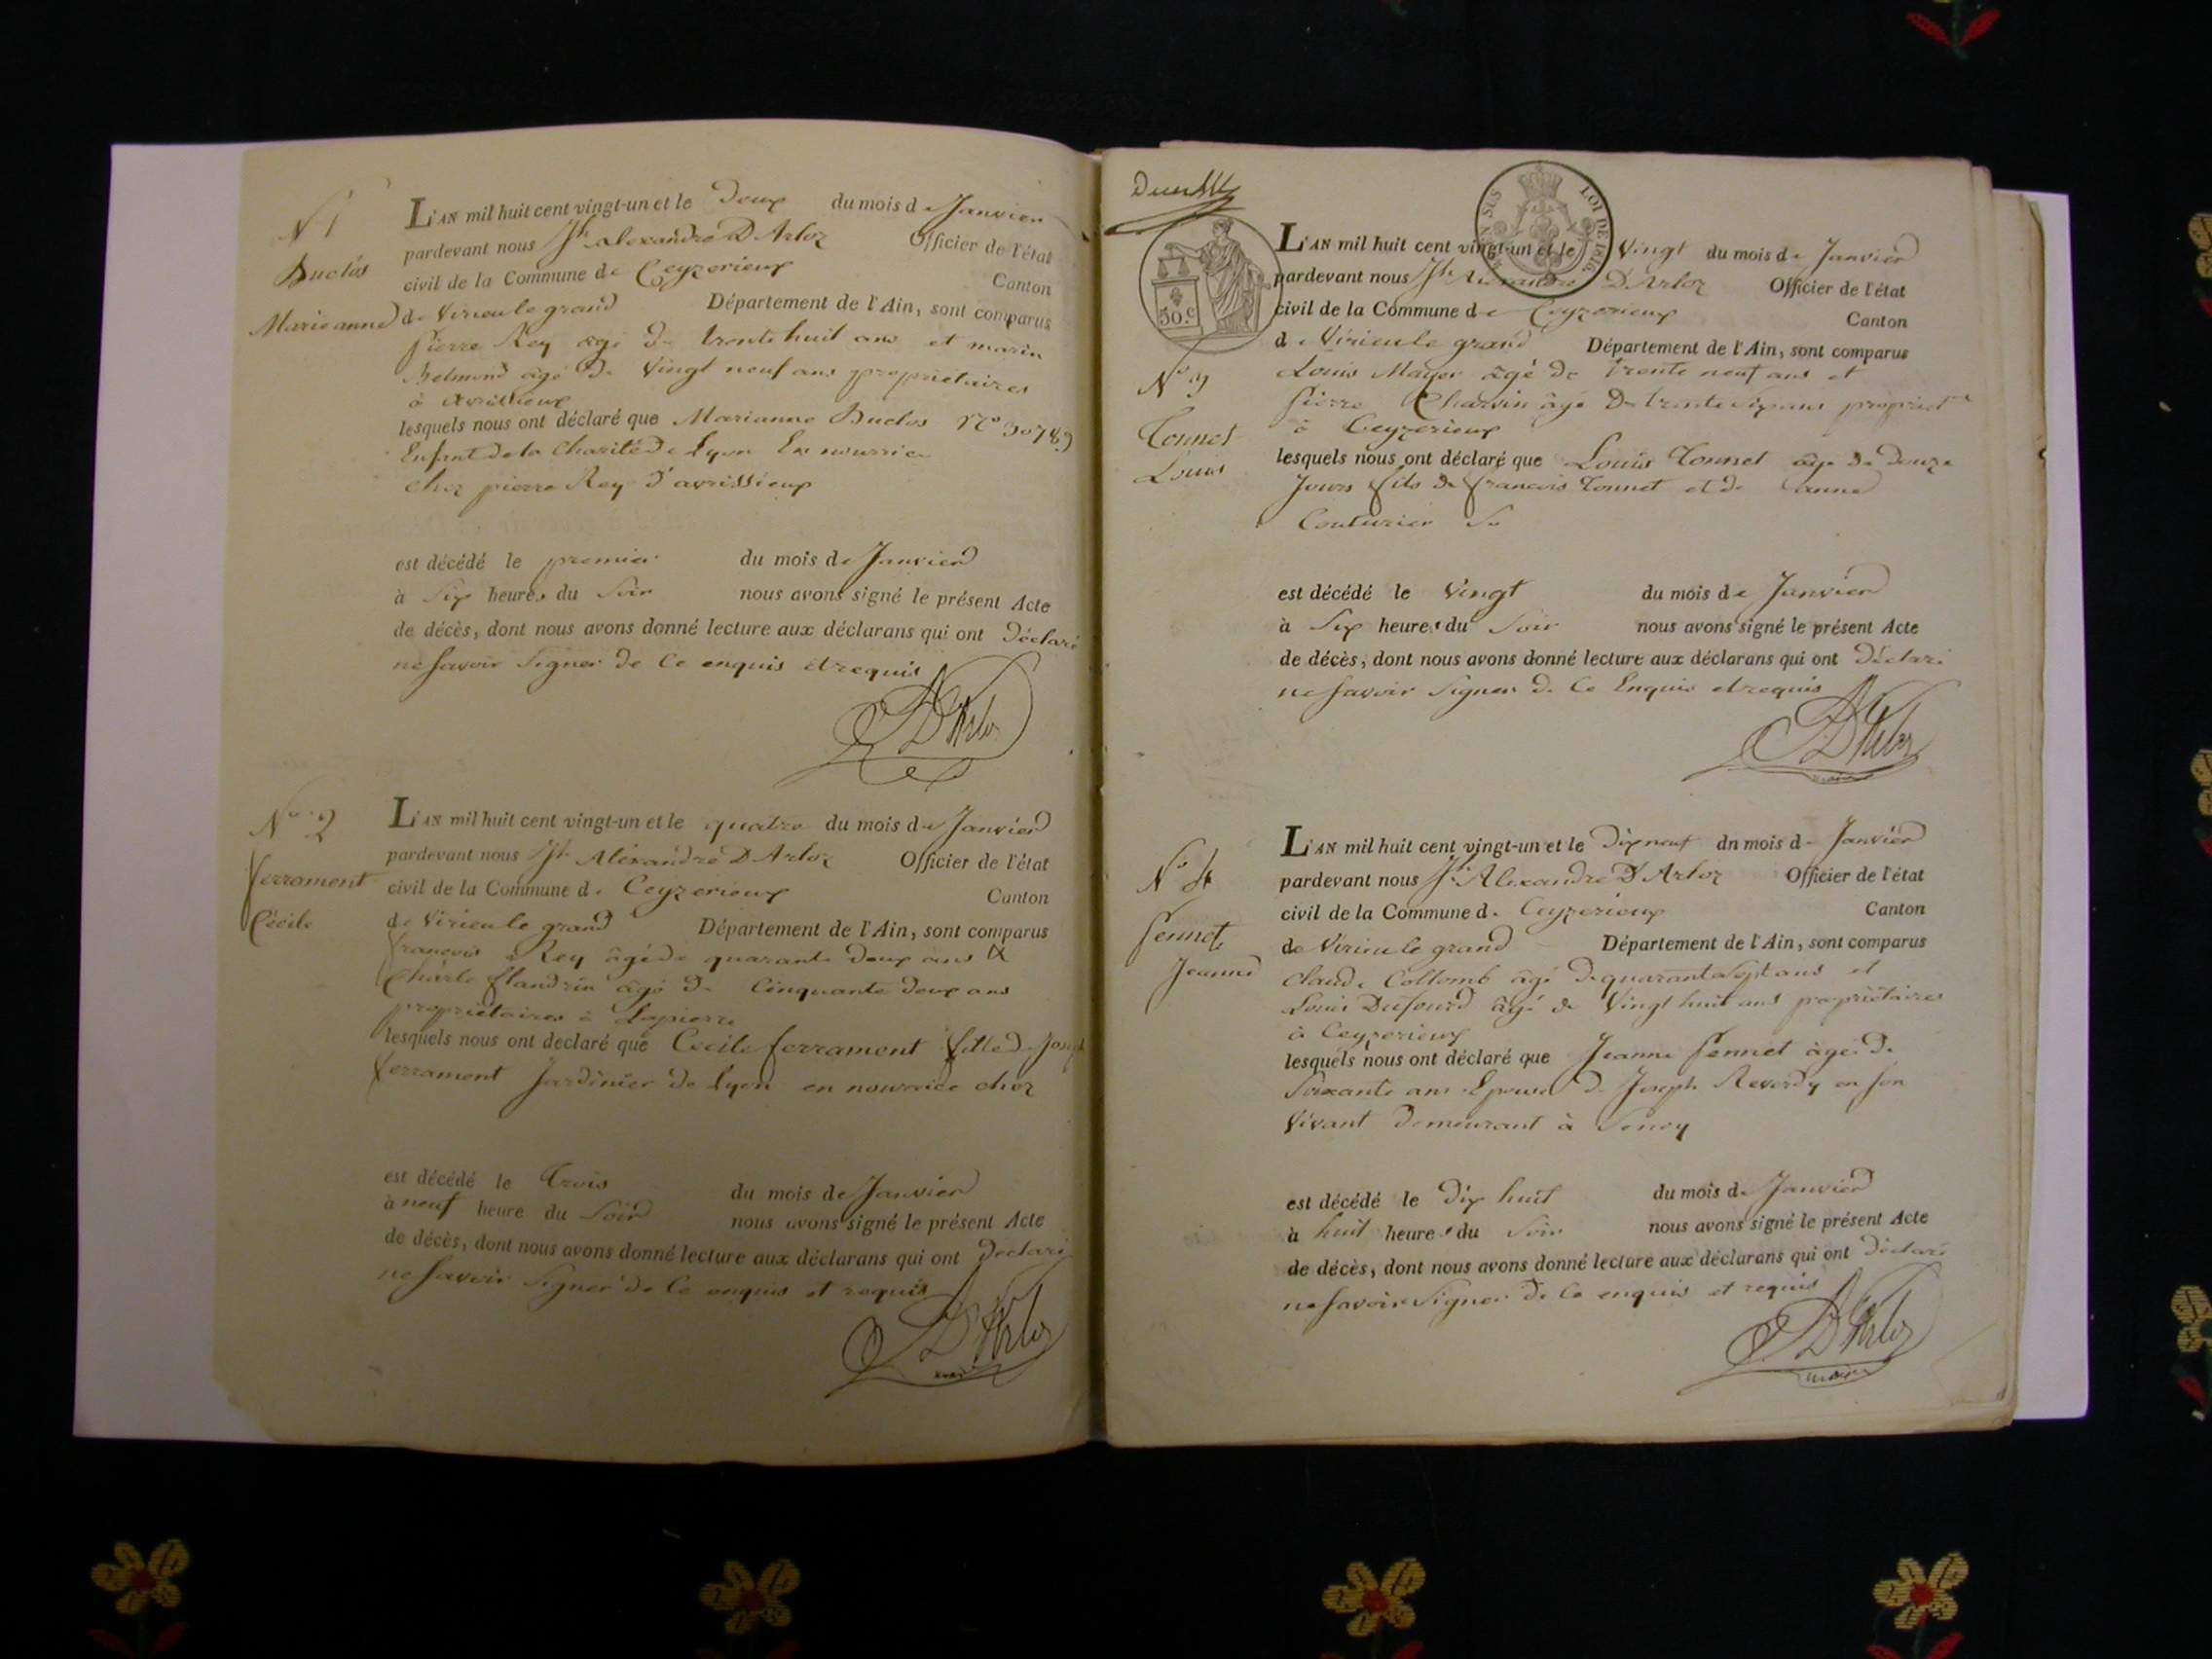 N 1
Duclos
Marieanne
L'AN mil huit cent vingt-un et le Deux du mois de Janvier
pardevant nous Jh alexandre D'Arloz Officier de l'état
civil de la Commune de Ceyzerieux Canton
de Virieu le grand Département de l'Ain, sont comparus
pierre Rey agé de trente huit ans et marin
Belmond âgé de Vingt neuf ans propriétaires
à avrissieux
lesquels nous ont déclaré que Marianne Duclos No 30789
Enfant de la Charité de Lyon En nourrice
chez pierre Rey d'avrissieux
est décédé le premier du mois de Janvier
à Six heures du Soir nous avons signé le présent Acte
de décès, dont nous avons donné lecture aux déclarans qui ont Déclaré
ne Savoir Signer de ce enquis et requis
D'Arloz
No 2
ferrament
Cécile
L'AN mil huit cent vingt-un et le quatre du mois de Janvier
pardevant nous Jh Alexandre D'Arloz Officier de l'état
civil de la Commune de Ceyzerieux Canton
de Virieu le grand Département de l'Ain, sont comparus
francois Rey âgé de quarante deux ans &
Charle flandrin agé de Cinquante deux ans
propriétaires à Lapierre
lesquels nous ont déclaré que Cécile ferrament fille de Joseph
ferrament Jardinier de Lyon en nourrice chez
est décédé le trois du mois de Janvier
à neuf heure du Soir nous avons signé le présent Acte
de décès, dont nous avons donné lecture aux déclarans qui ont Déclaré
ne Savoir Signer de ce enquis et requis
D'Arloz
maire
LOI DE 1816
50.c
L'AN mil huit cent vingt-un et le Vingt du mois de Janvier
pardevant nous Jh Alexandre D'Arloz Officier de l'état
civil de la Commune de Ceyzerieux Canton
de Virieu le grand Département de l'Ain, sont comparus
No 3
Tonnet
Louis
Louis Mayer âgé de trente neuf ans et
pierre Charvin âgé de trente six ans propriet
à Ceyzerieux
lesquels nous ont déclaré que Louis Tonnet âgé de douze
Jours fils de francois Tonnet et de anne
Couturier
est décédé le Vingt du mois de Janvier
à Six heures du Soir nous avons signé le présent Acte
de décès, dont nous avons donné lecture aux déclarans qui ont Déclaré
ne Savoir Signer de Ce Enquis et requis
D'Arloz
maire
No 4
Jeanne
L'AN mil huit cent vingt-un et le Dix neuf dn mois de Janvier
pardevant nous Jh Alexandre D'Arloz Officier de l'état
civil de la Commune de Ceyzerieux Canton
de Virieu le grand Département de l'Ain, sont comparus
Claude Collomb âgé de quarante Sept ans et
Louis Dufourd âgé de Vingt huit ans propriétaires
à Ceyzerieux
lesquels nous ont déclaré que Jeanne agé de
Soixante ans Epouse de Joseph Reverdy en Son
Vivant demeurant à
est décédé le Dix huit du mois de Janvier
à huit heures du Soir nous avons signé le présent Acte
de décès, dont nous avons donné lecture aux déclarans qui ont Déclaré
ne Savoir Signer de Ce enquis et requis
D'Arloz
maire